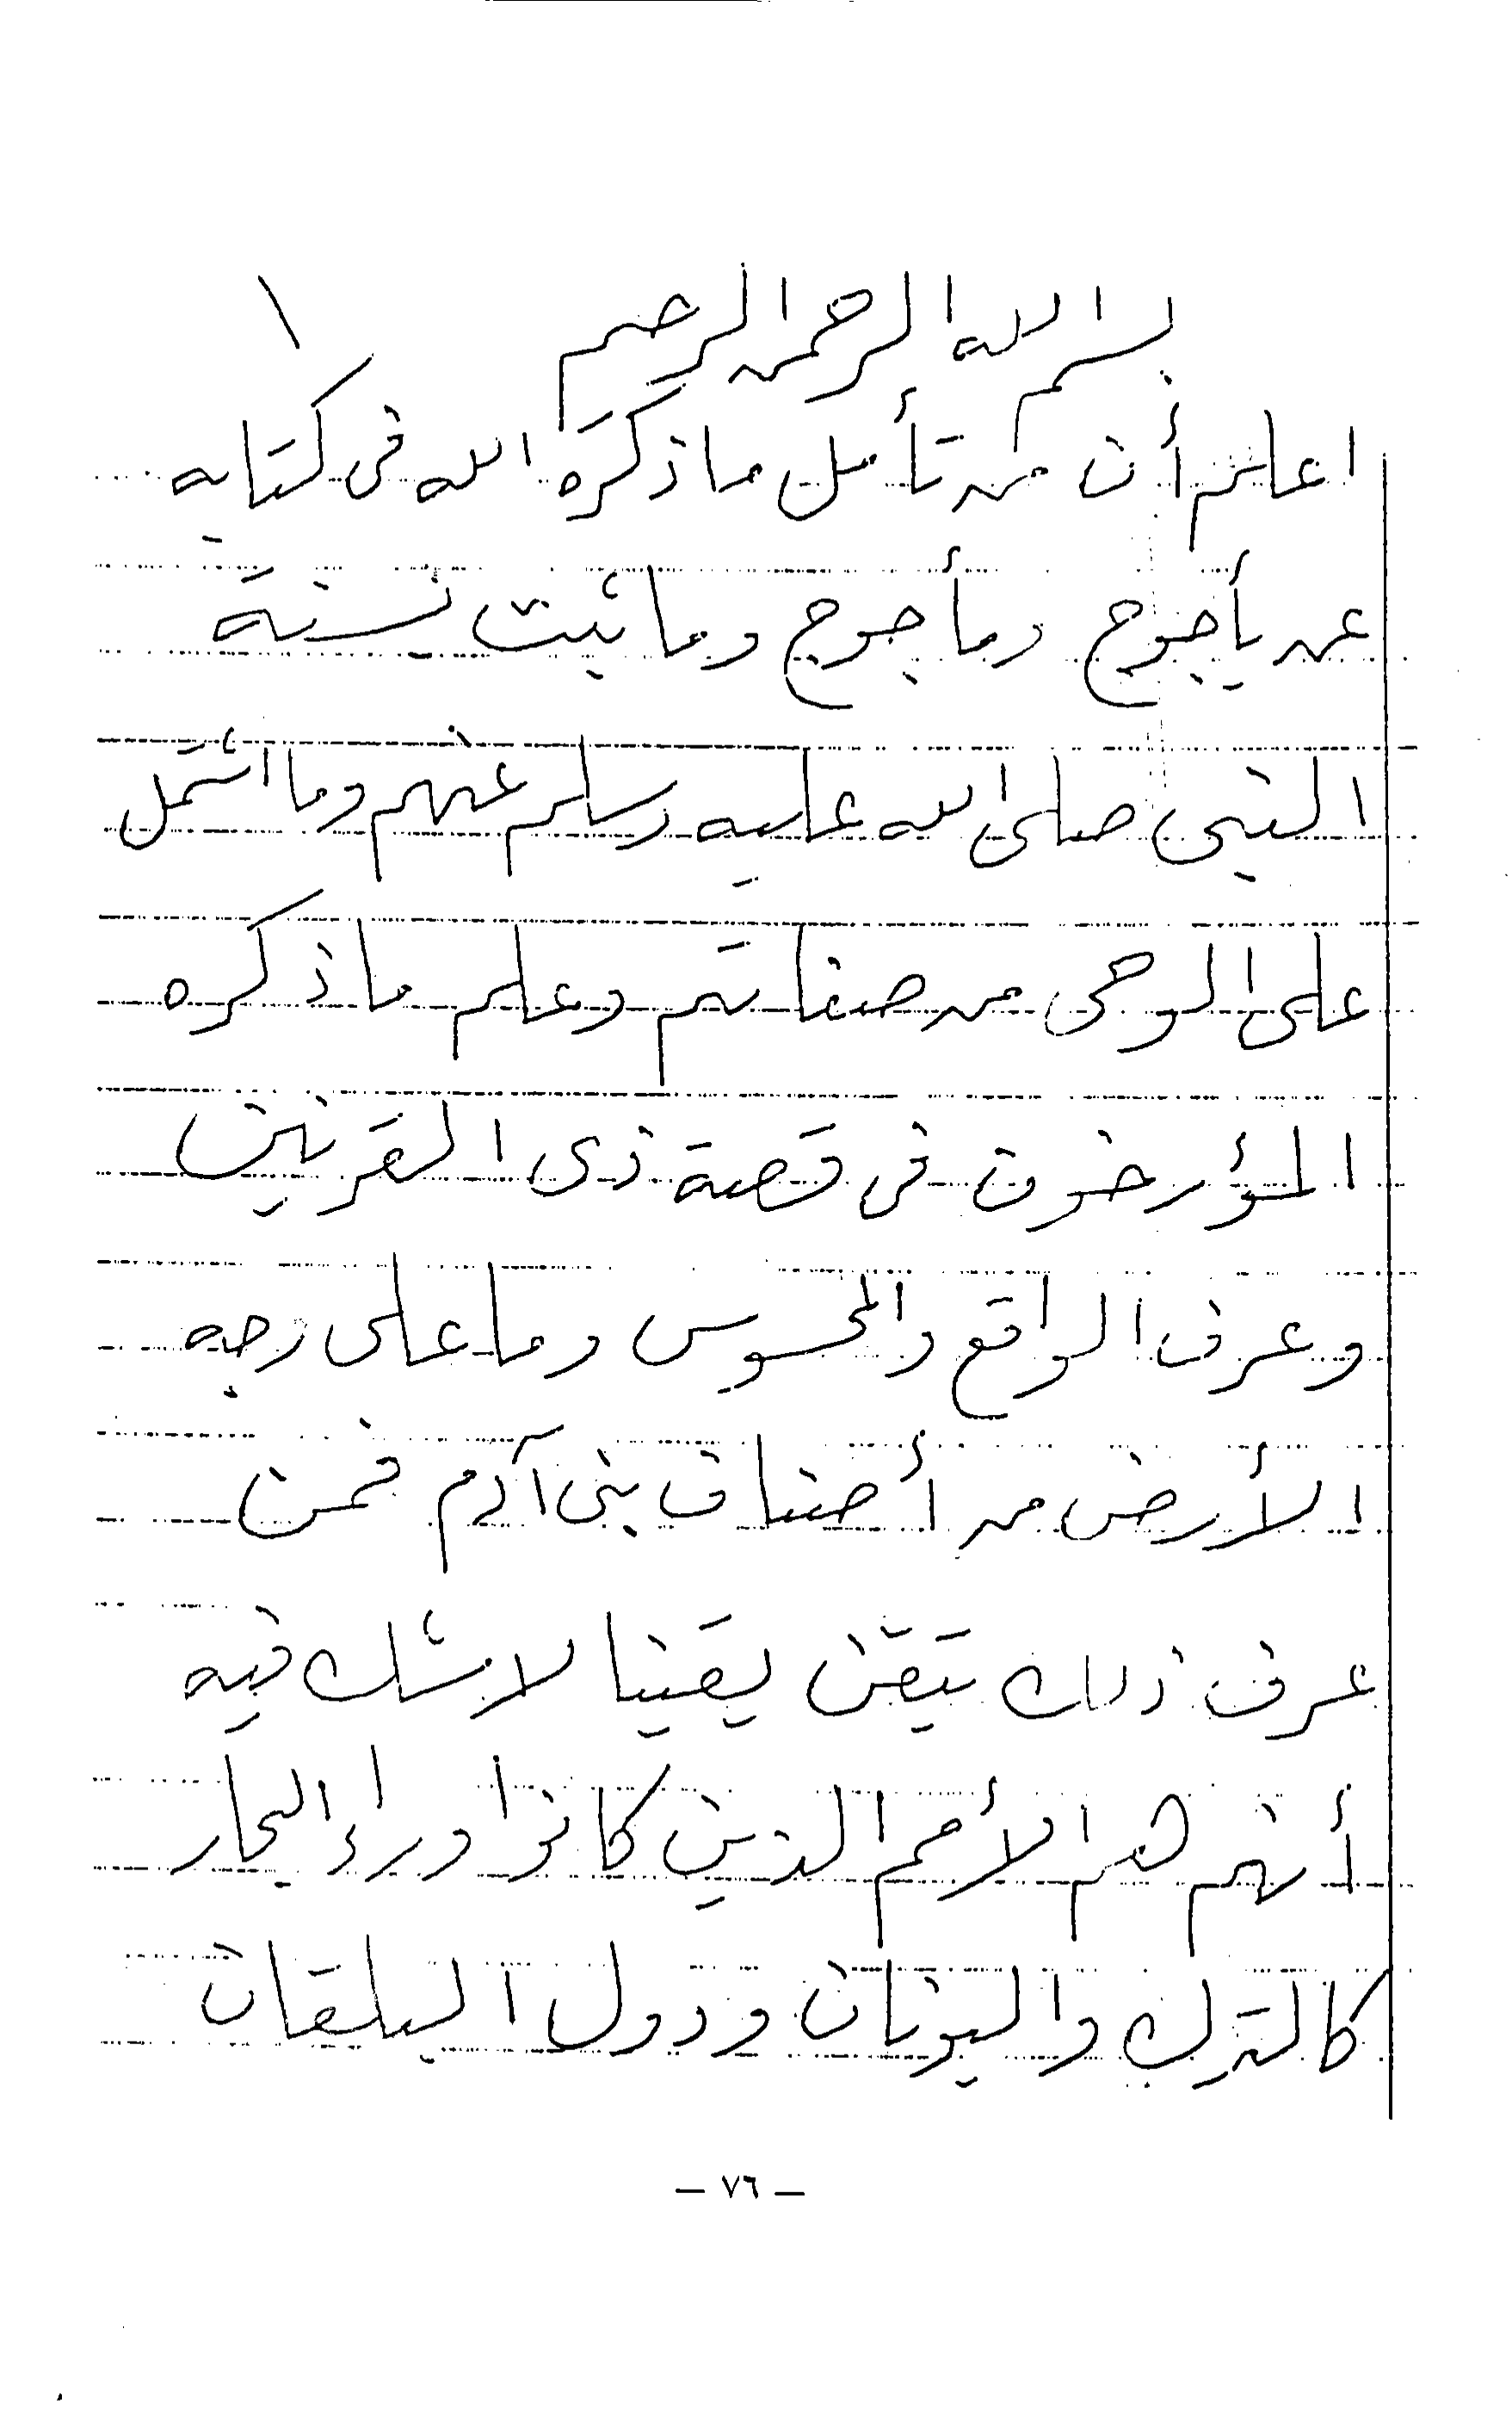 بسم الله الرحمن الرحيم ١
اعلم أن من تأمل ما ذكره الله فى كتابه
عن يأجوج ومأجوج وما ثبت بسنة
النبى صلى الله عليه وسلم عنهم وما اشتمل
على الوحى من صفاتهم وعلم ما ذكره
المؤرخون فى قصة ذى القرنين
وعرف الواقع والمحسوس وما على وجه
الأرض من أصناف بنى آدم فمن
عرف ذلك تيقن يقينا لا شك فيه
أنهم هم الأمم الذين كانوا وراء البحار
كالترك واليونان ودول البلقان
— ٧٦ —